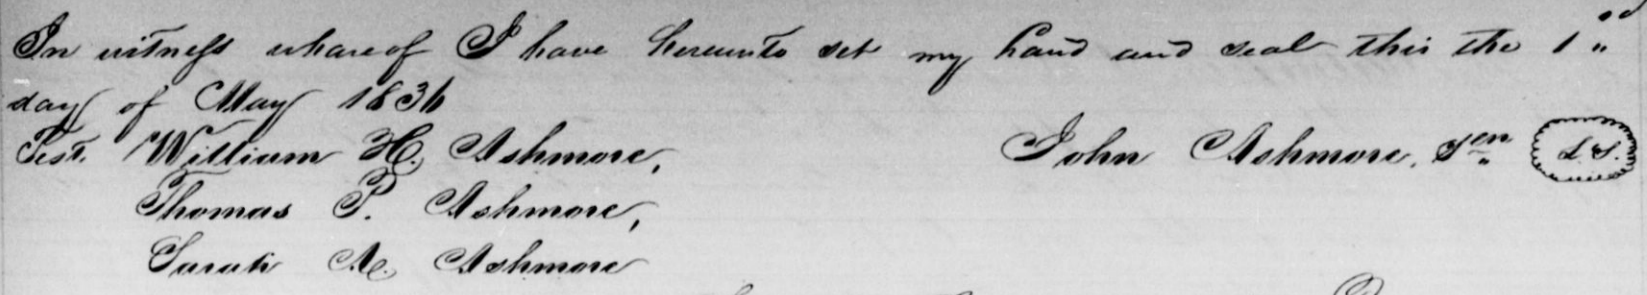 In witness whareof I have hereunto set my hand and seal this the 1"
day of May 1836
Test. William H. Ashmore, John Ashmore, Sen (L.S.)
Thomas P. Ashmore,
Sarah A. Ashmore